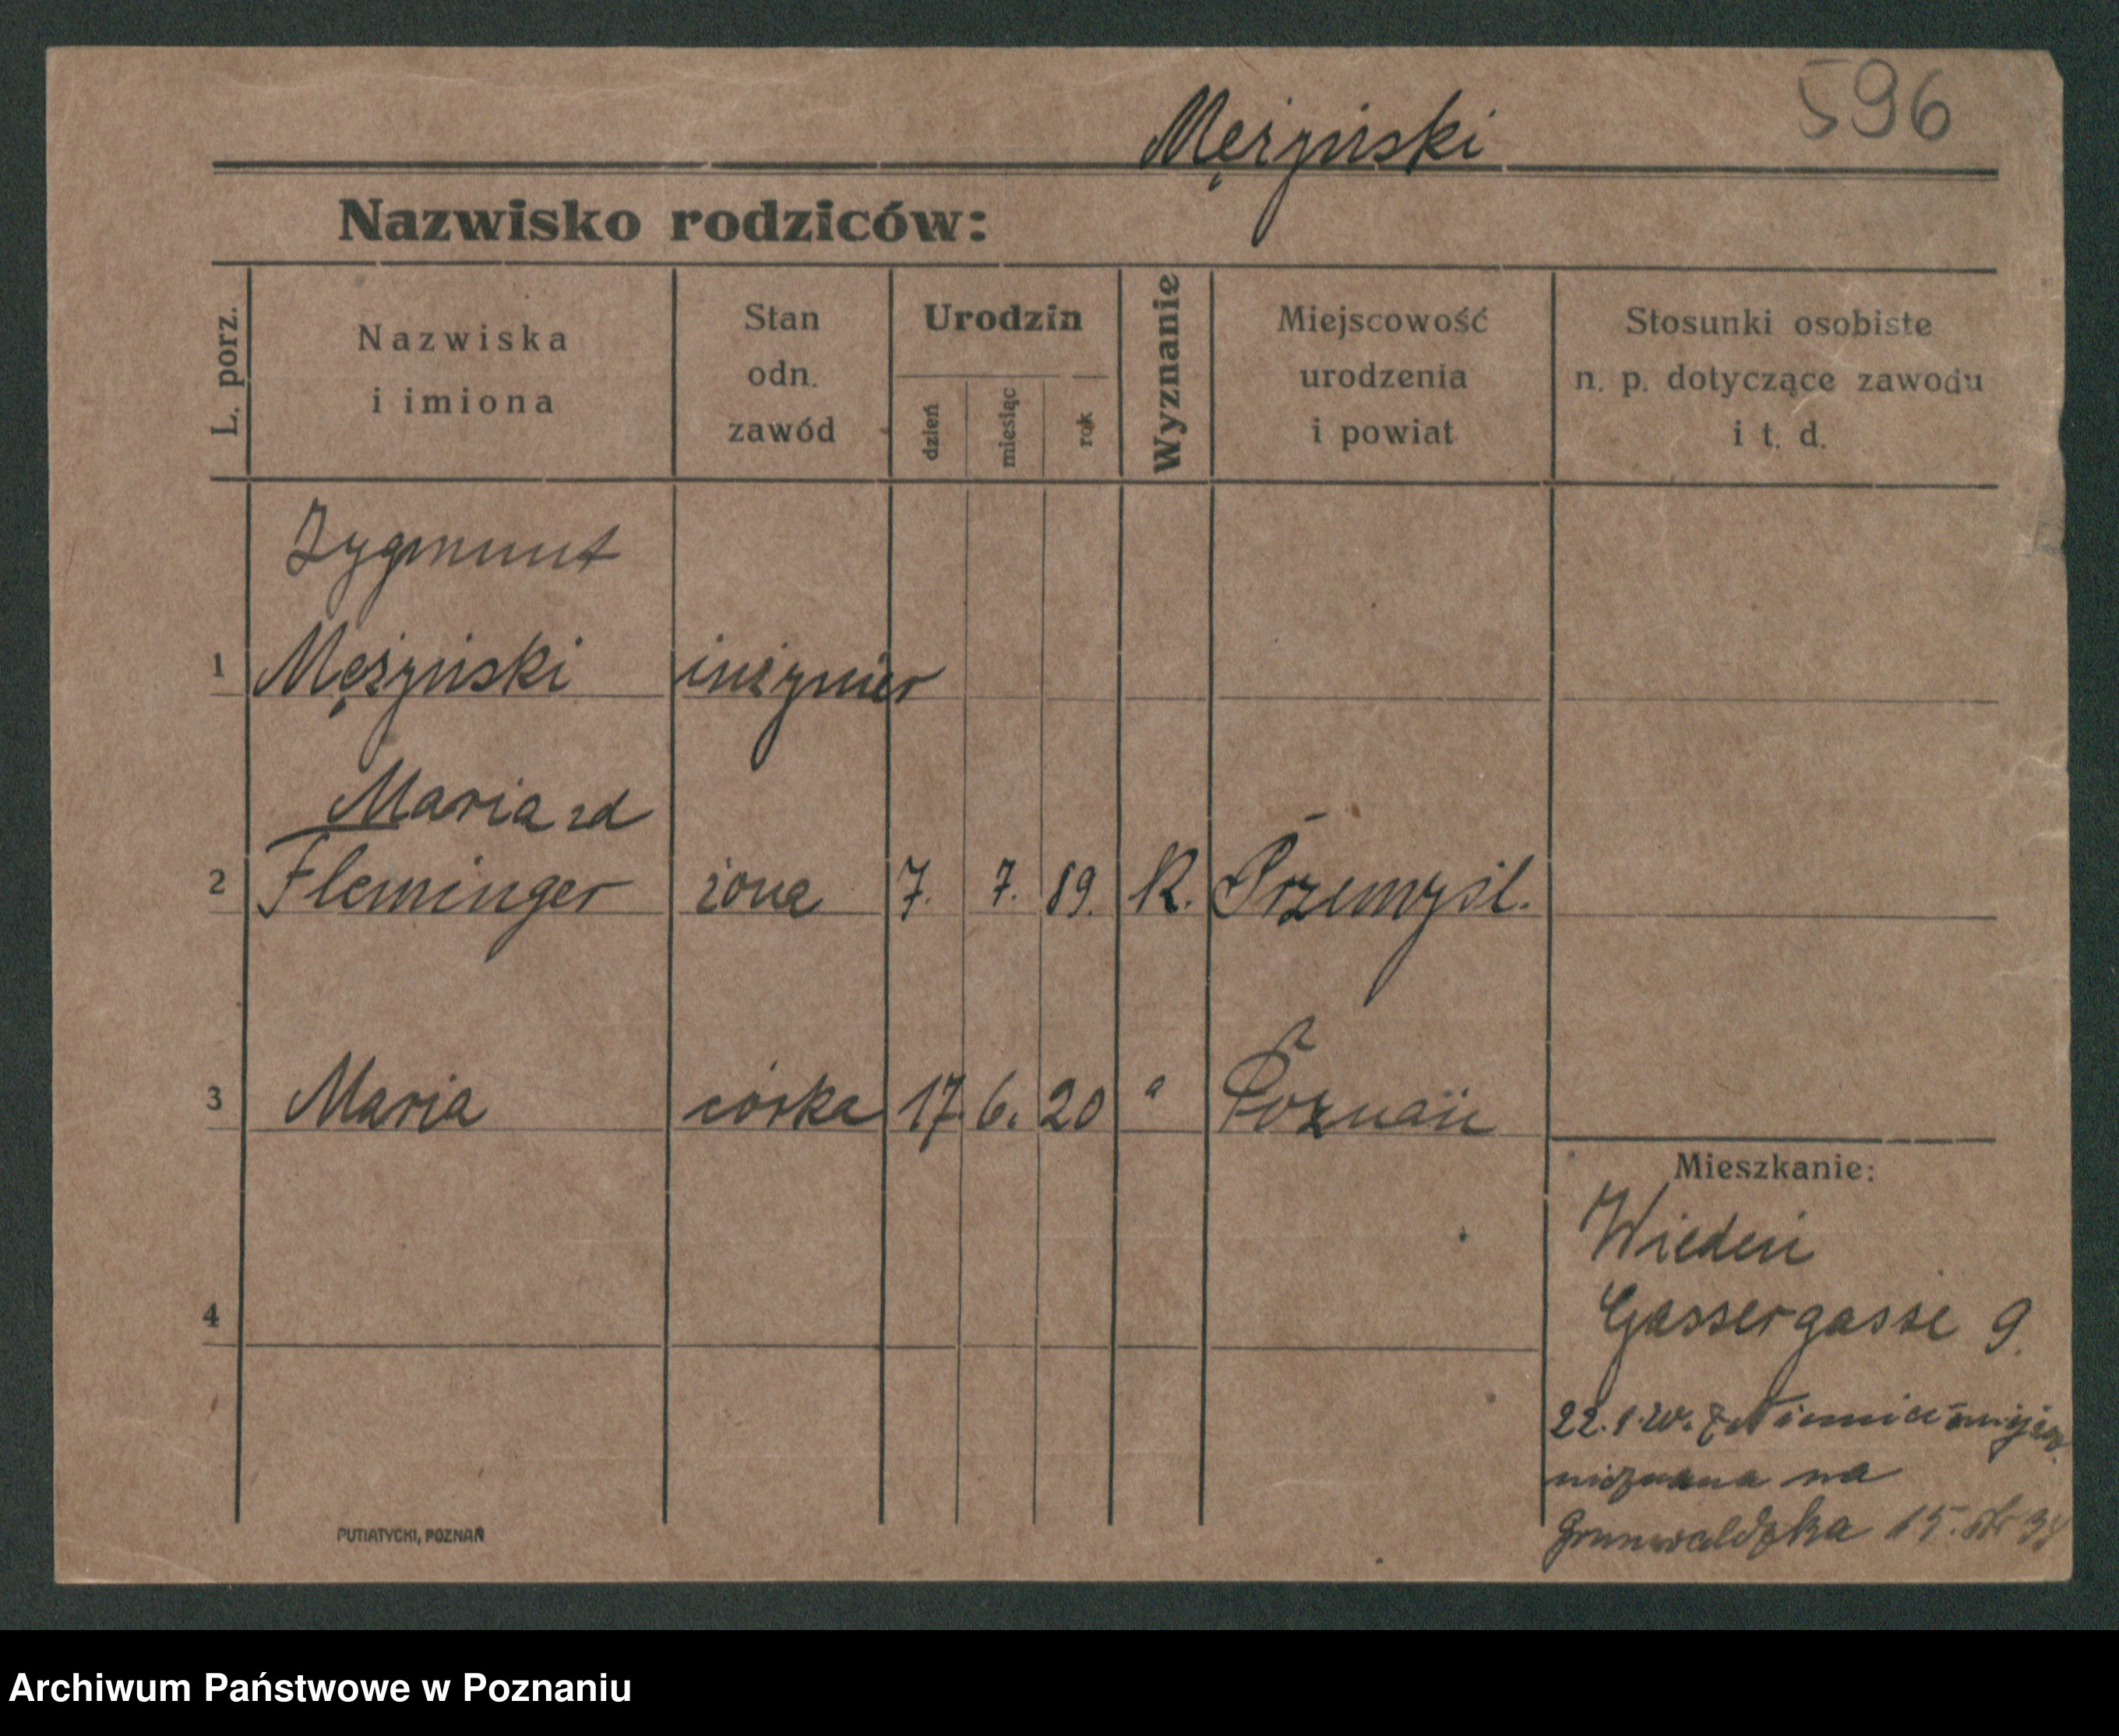 596
Mężyński
Nazwisko rodziców:
L. porz.
Nazwiska
i imiona
Stan
odn.
zawód
Urodzin
dzień
miesiąc
rok
Wyznanie
Miejscowość
urodzenia
i powiat
Stosunki osobiste
n. p. dotyczące zawodu
i t. d.
Zygmunt
1 Mężyński inżynier
Maria zd
2 Fleminger żona 7. 7. 89. R. Przemyśl.
3 Maria córka 17. 6. 20 " Poznań
Mieszkanie:
Wiedeń
Gassergasse 9.
4
22.
na
Grunwaldzka 15.
PUTIATYCKI, POZNAŃ
Archiwum Państwowe w Poznaniu